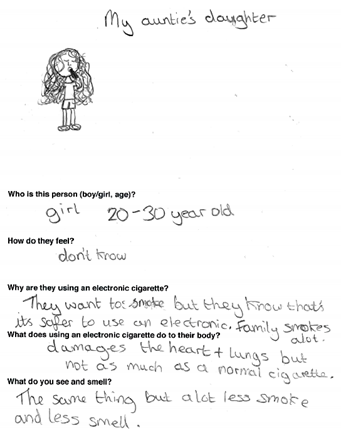 My auntie's daughter
Who is this person (boy/girl, age)?
girl 20-30 year old
How do they feel?
don't know
Why are they using an electronic cigarette?
They want to smoke but they know that's
its safer to use an electronic. Family smokes
alot.
What does using an electronic cigarette do to their body?
damages the heart + lungs but
not as much as a normal cigarette.
What do you see and smell?
The same thing but alot less smoke
and less smell.